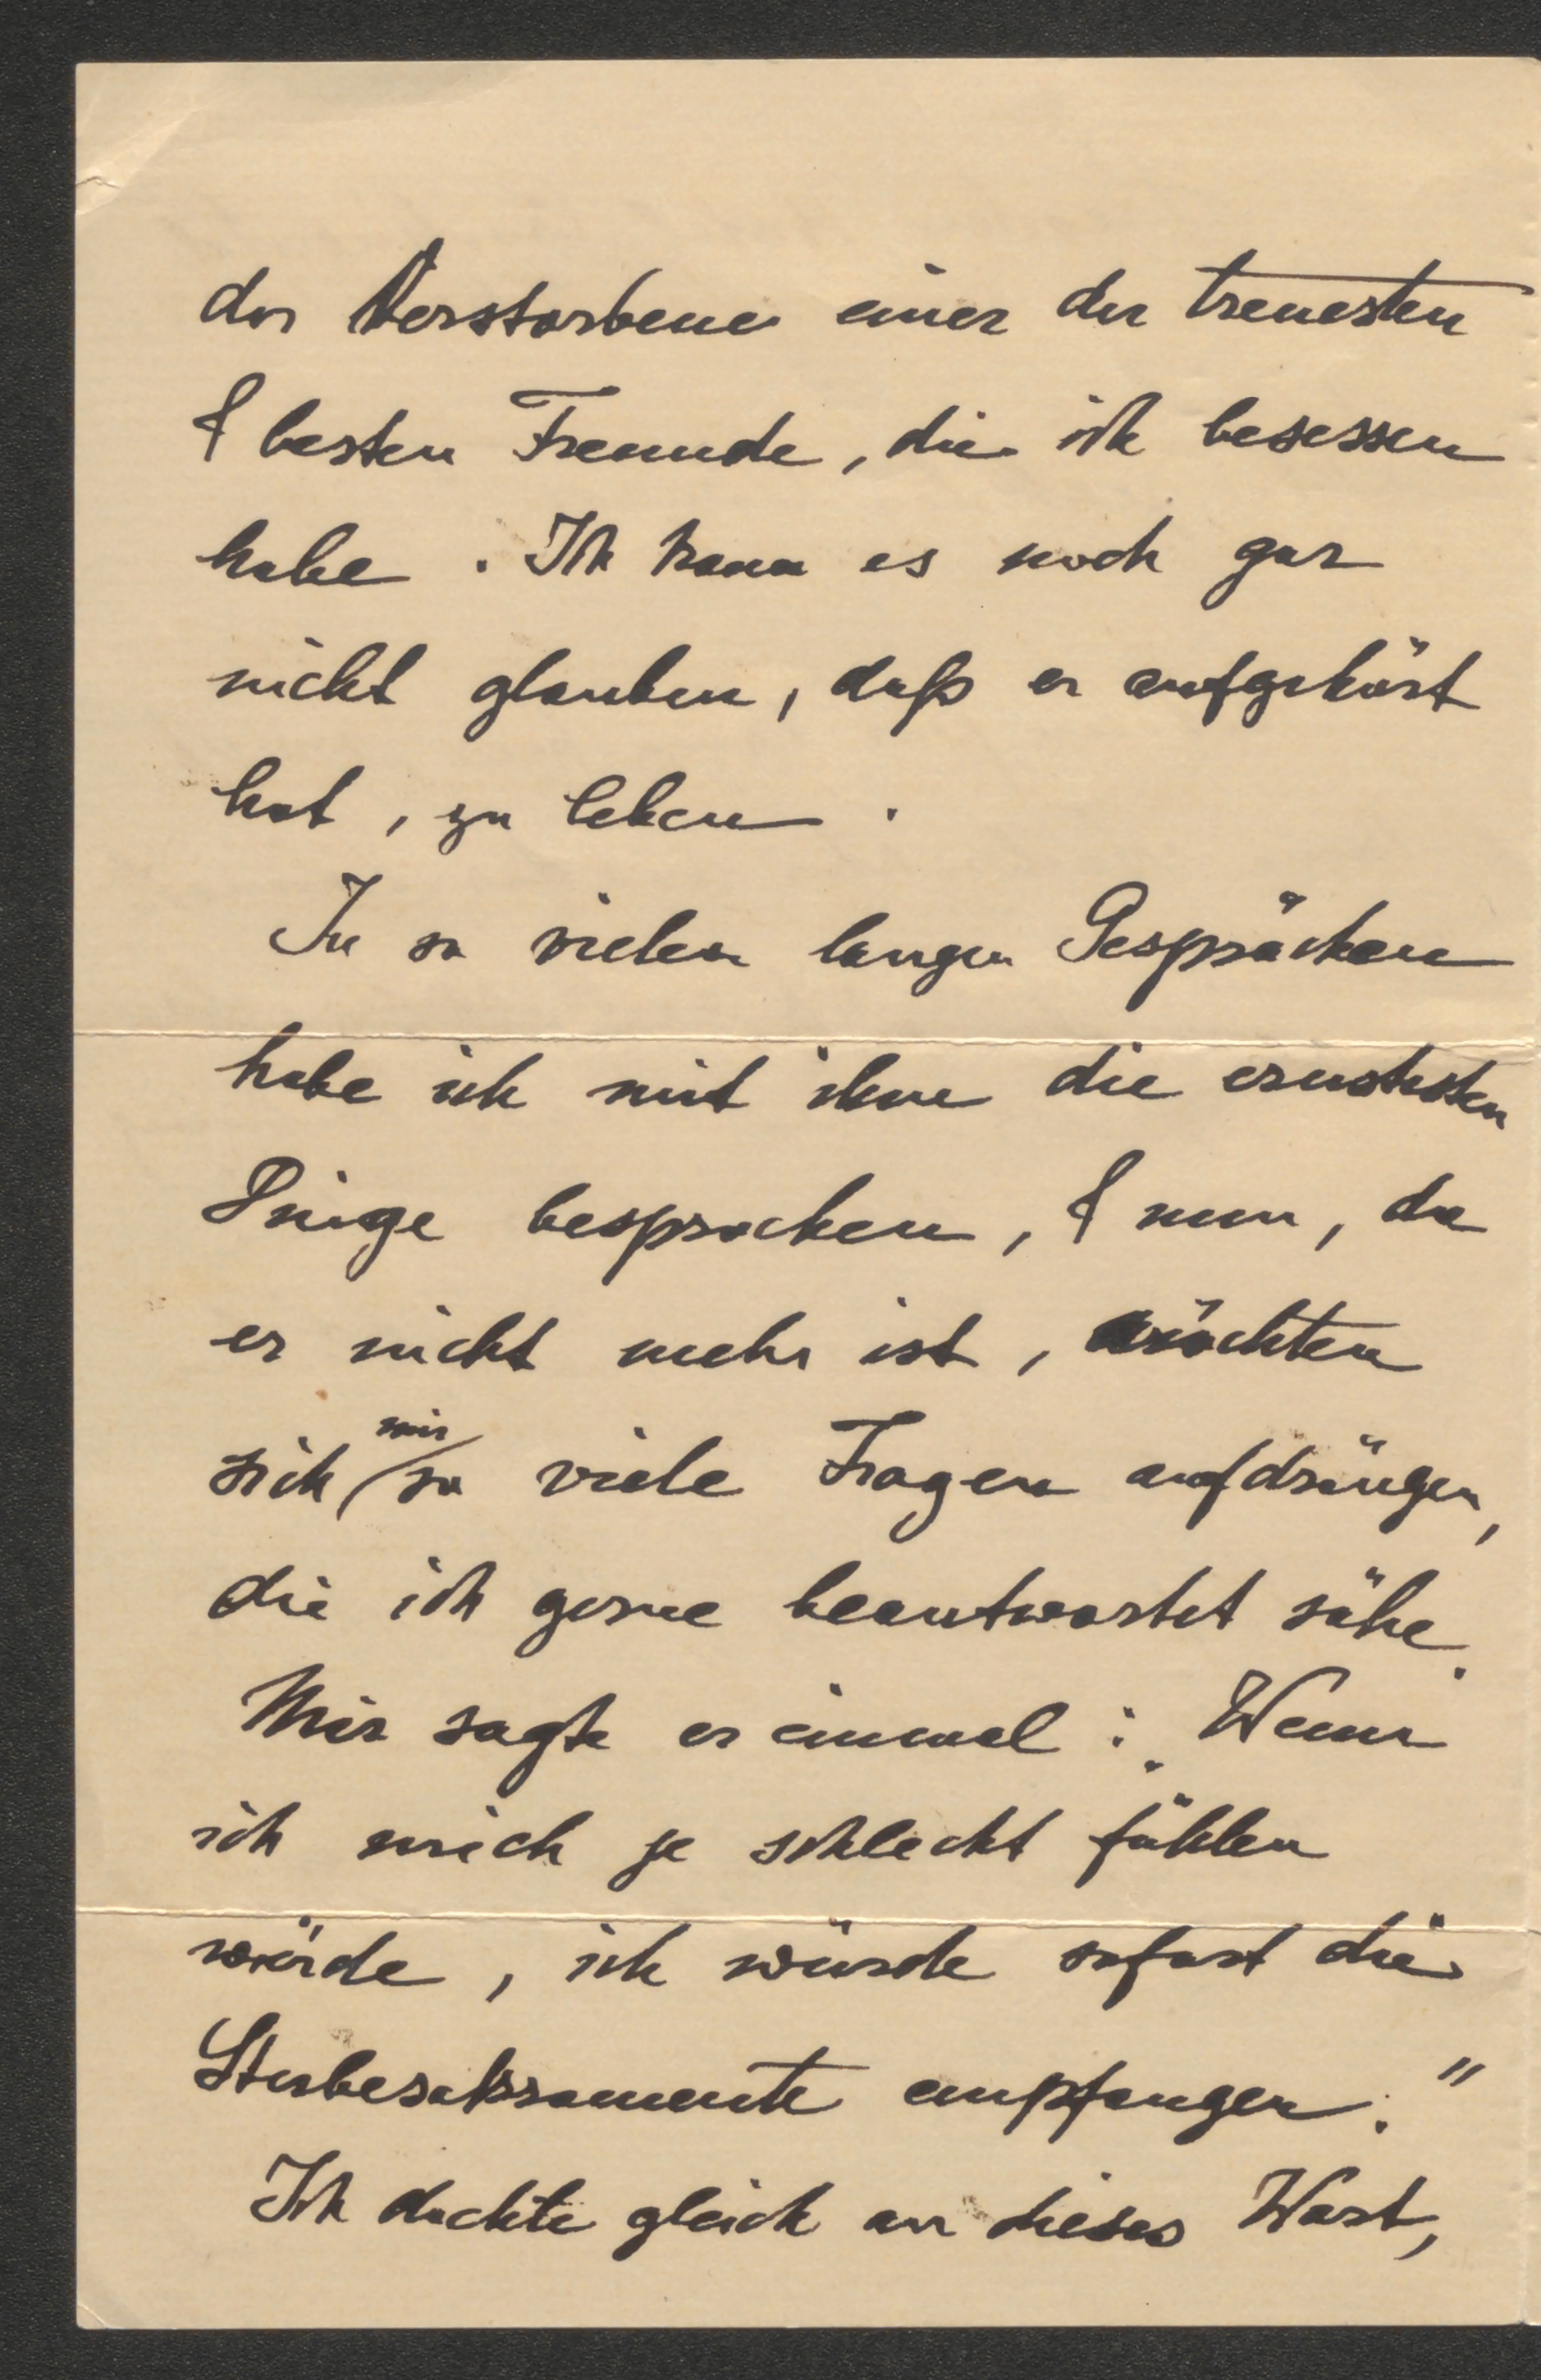 der Verstorbene einer der treuesten
& besten Freunde, die ich besessen
habe. Ich kann es noch gar
nicht glauben, daß er aufgehört
hat, zu leben.
In so vielen langen Gesprächen
habe ich mit ihm die ernstesten
Dinge besprochen, & nun, da
er nicht mehr ist, möchten
sich mir so viele Fragen aufdrängen,
die ich gerne beantwortet sähe.
Mir sagte er einmal: „Wenn
ich mich je schlecht fühlen
würde, ich würde sofort die
Sterbesakramente empfangen."
Ich dachte gleich an dieses Wort,